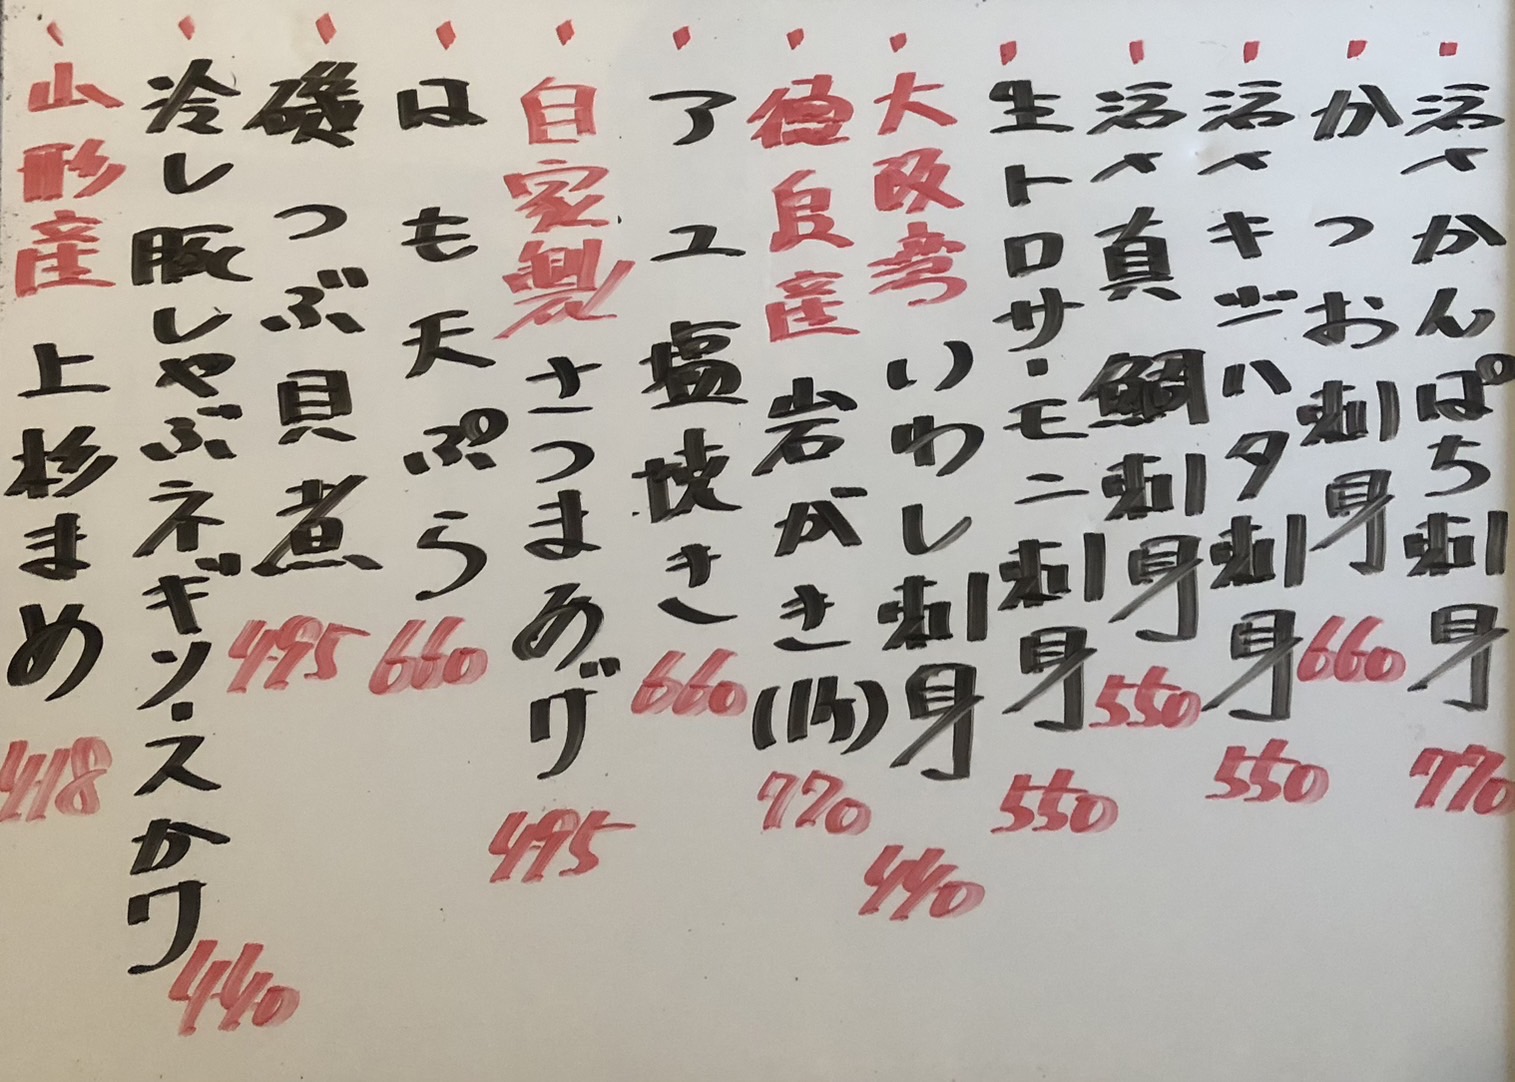 活〆かんぱち刺身 770
かつお刺身 660
活〆キジハタ刺身 550
活〆真鯛刺身 550
生トロサーモン刺身 550
大阪湾 いわし刺身 440
徳島産 岩がき(1ヶ) 770
アユ塩焼き 660
自家製 さつまあげ 495
はも天ぷら 660
磯つぶ貝煮 495
冷し豚しゃぶネギソースかけ 440
山形産 上杉まめ 418